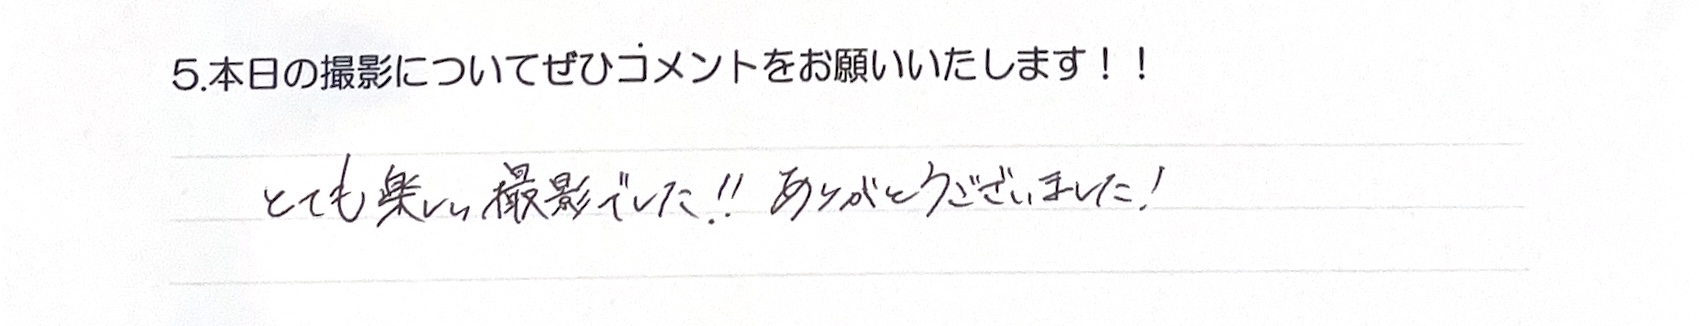 5.本日の撮影についてぜひコメントをお願いいたします！！
とても楽しい撮影でした!! ありがとうございました!